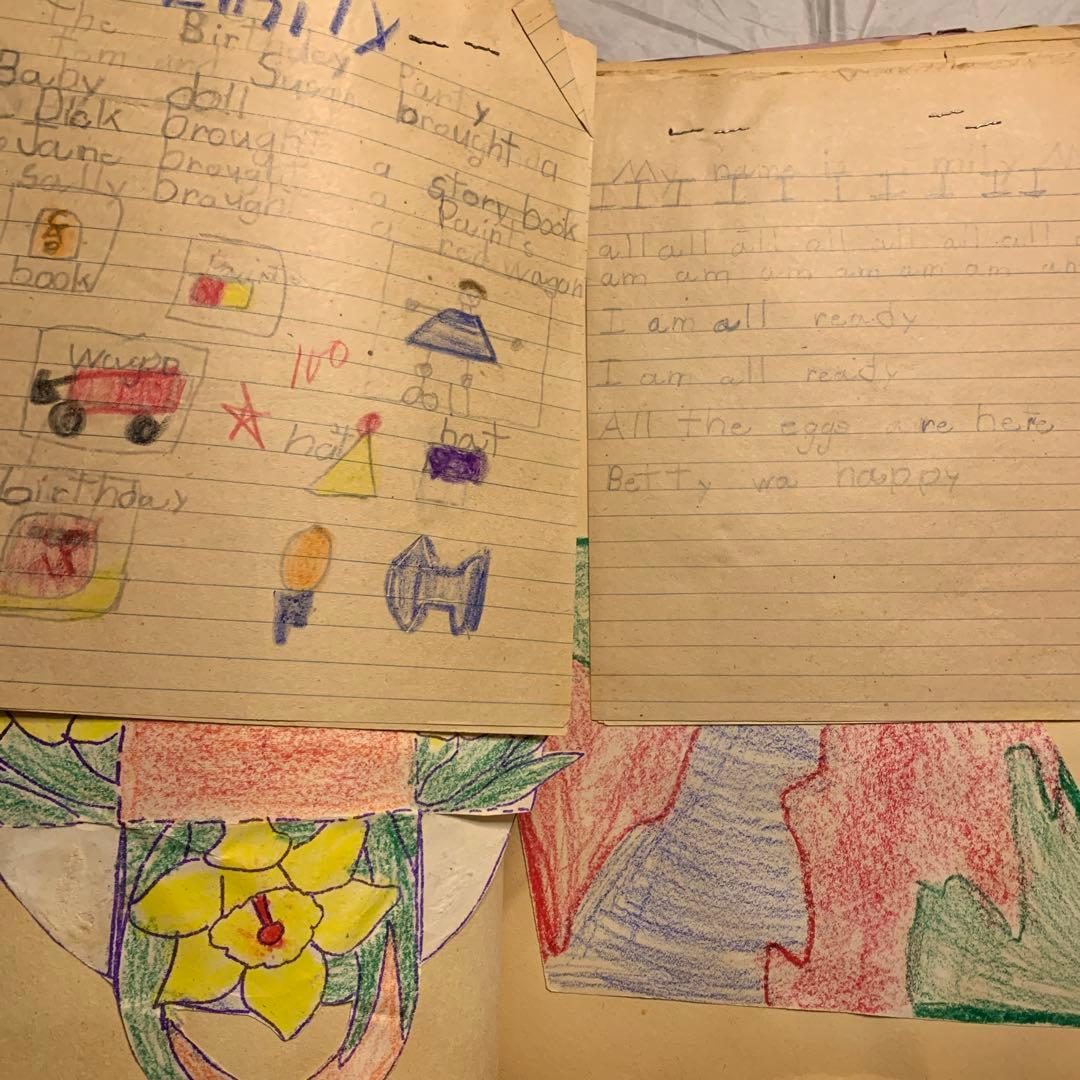 Emily
The Birthday Party
Tom and Susan brought a
Baby doll
Dick brought a story book
Jane brought a Paints
Sally brought a red wagon
book
Paints
doll
Wagon
100
hat
hat
birthday
My name is
I I I I I I I I I
all all all all all all all
am am am am am am am
I am all ready
I am all ready
All the eggs are here
Betty wa happy